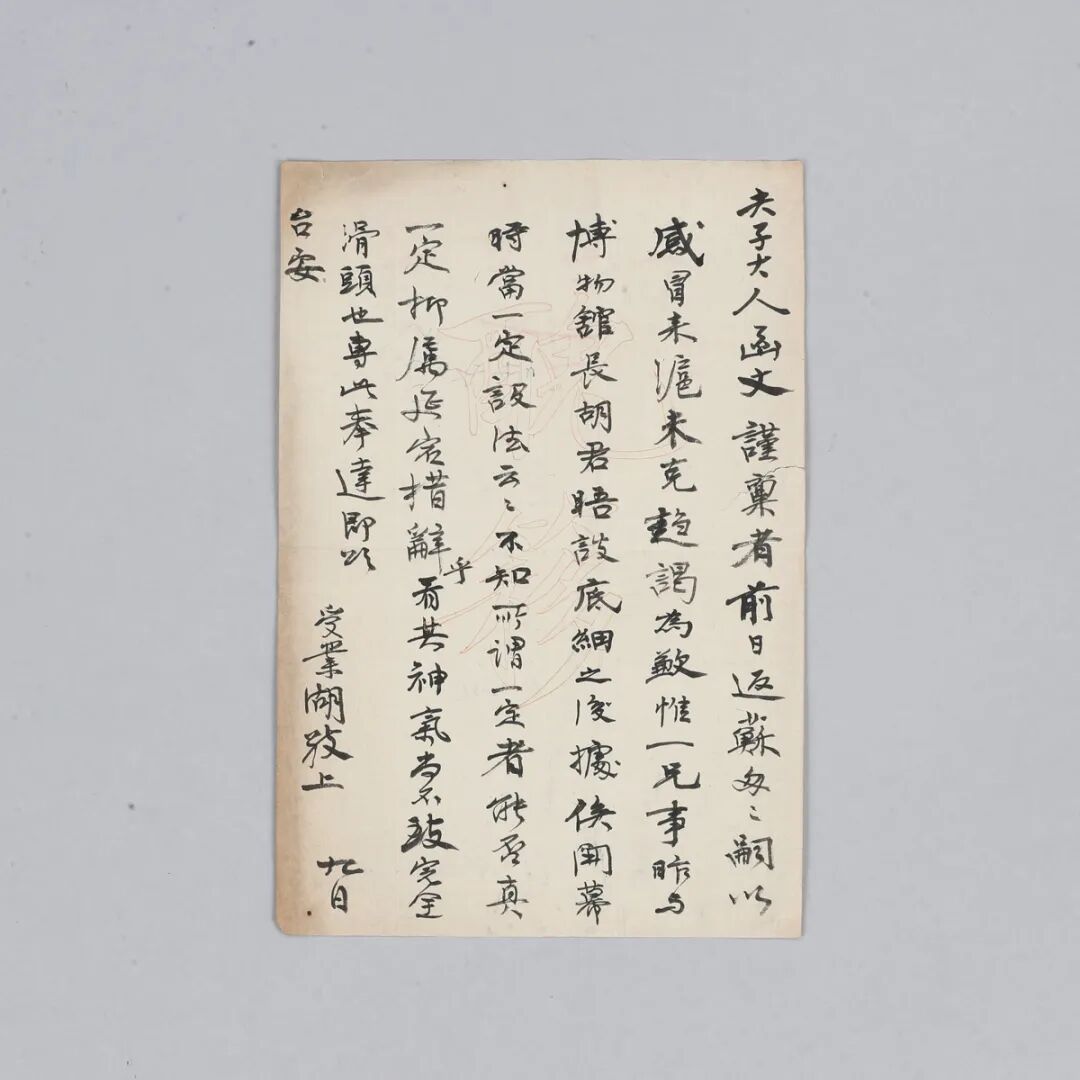 夫子大人函丈謹稟者前日返蘇匆〻嗣以
感冒来滬未克趨謁為歉惟一兄事昨与
博物館長胡君晤談底細之後據俟開幕
時當一定設法云〻不知所謂一定者能否真
一定抑属延宕措辭乎看其神氣尚不致完全
滑頭也專此奉達即頌
台安
受業湖敬上
九日